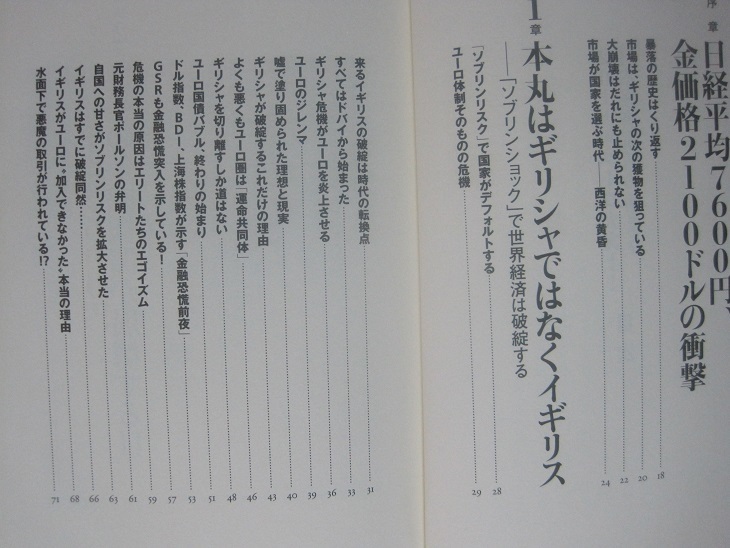 序章
日経平均7600円、
金価格2100ドルの衝撃
暴落の歴史はくり返す……18
市場は、ギリシャの次の獲物を狙っている……20
大崩壊はだれにも止められない……22
市場が国家を選ぶ時代――西洋の黄昏……24
1章 本丸はギリシャではなくイギリス
――「ソブリンショック」で世界経済は破綻する
「ソブリンリスク」で国家がデフォルトする……28
ユーロ体制そのものの危機……29
来るイギリスの破綻は時代の転換点……31
すべてはドバイから始まった……33
ギリシャ危機がユーロを炎上させる……36
ユーロのジレンマ……39
嘘で塗り固められた理想と現実……40
ギリシャが破綻するこれだけの理由……43
よくも悪くもユーロ圏は「運命共同体」……46
ギリシャを切り離すしか道はない……48
ユーロ国債バブル、終わりの始まり……51
ドル指数、BDI、上海株指数が示す「金融恐慌前夜」……53
GSRも金融恐慌突入を示している!……57
危機の本当の原因はエリートたちのエゴイズム……59
元財務長官ポールソンの弁明……61
自国への甘さがソブリンリスクを拡大させた……63
イギリスはすでに破綻同然……66
イギリスがユーロに“加入できなかった”本当の理由……68
水面下で悪魔の取引が行われている!?……71